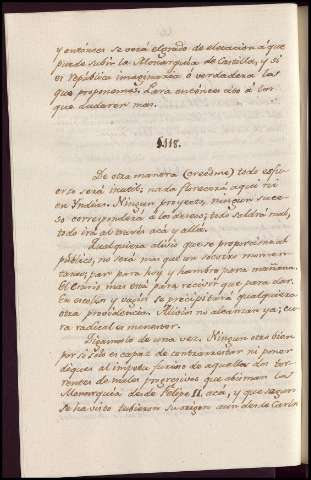 y entónces se verá el grado de elevacion á que
puede subir la Monarquía de Castilla, y si
es República imaginaria ó verdadera las
que proponemos. Para entónces cito á los
que dudaren mas.
§.118.
De otra manera (creedme) todo esfu-
erzo será inutil; nada florecerá aqui ni
en Indias. Ningun proyecto, ningun suce-
so corresponderá á los deseos; todo saldrá mal,
todo irá al través acá y allá.
Qualquiera alivio que se proporcione al
público, no será mas que un socorro momen-
taneo; pan para hoy y hambre para mañana.
El Erario mas está para recibir que para dar.
En eleccion y vagio se precipitará qualquiera
otra providencia. Alivios no alcanzan ya; cu-
ra radical es menester.
Digamoslo de una vez. Ningun otro bien
por sí solo es capaz de contrarrestar ni poner
diques al impetu furioso de aquellos dos tor-
rentes de males progresivos que abisman la
Monarquía desde Felipe II. acá, y que segun
se ha visto tubieron su origen aun desde Carlos